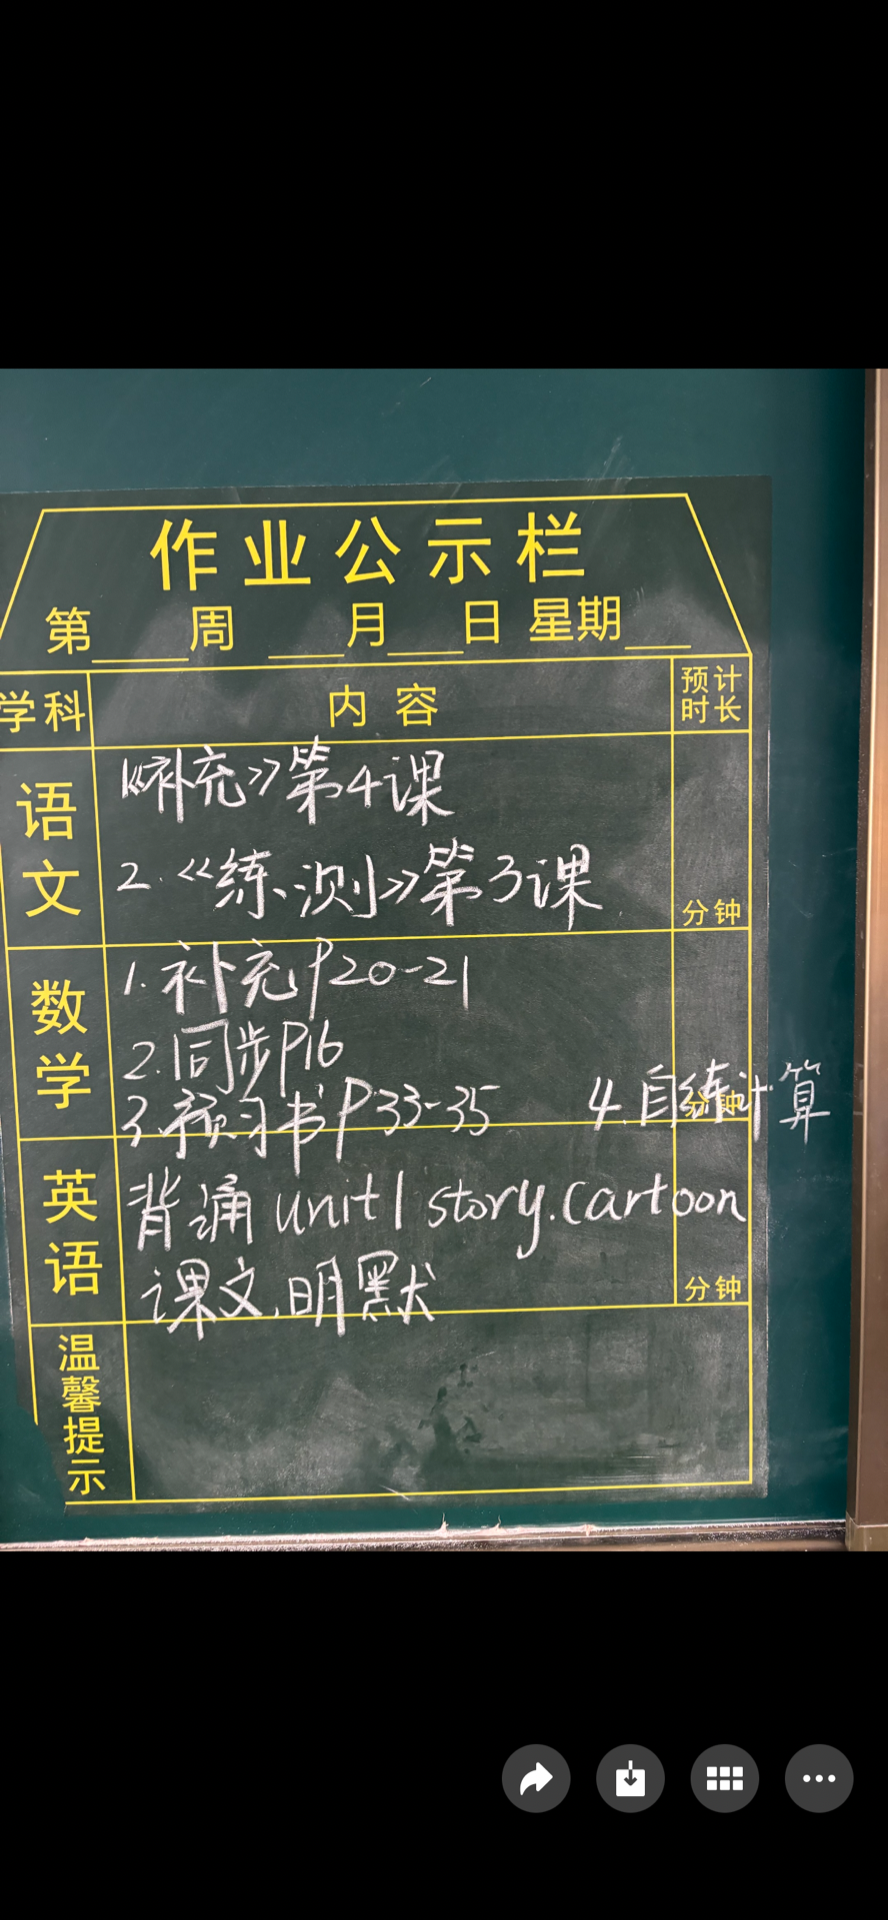 作业公示栏
第____周 ____月____日 星期____
学科 内容 预计时长
语文
1.《补充》第4课
2.《练、测》第3课
分钟
数学
1.补充P20-21
2.同步P16
3.预习书P33-35 4.自练计算
分钟
英语
背诵unit1 story.cartoon
课文,明默
分钟
温馨提示